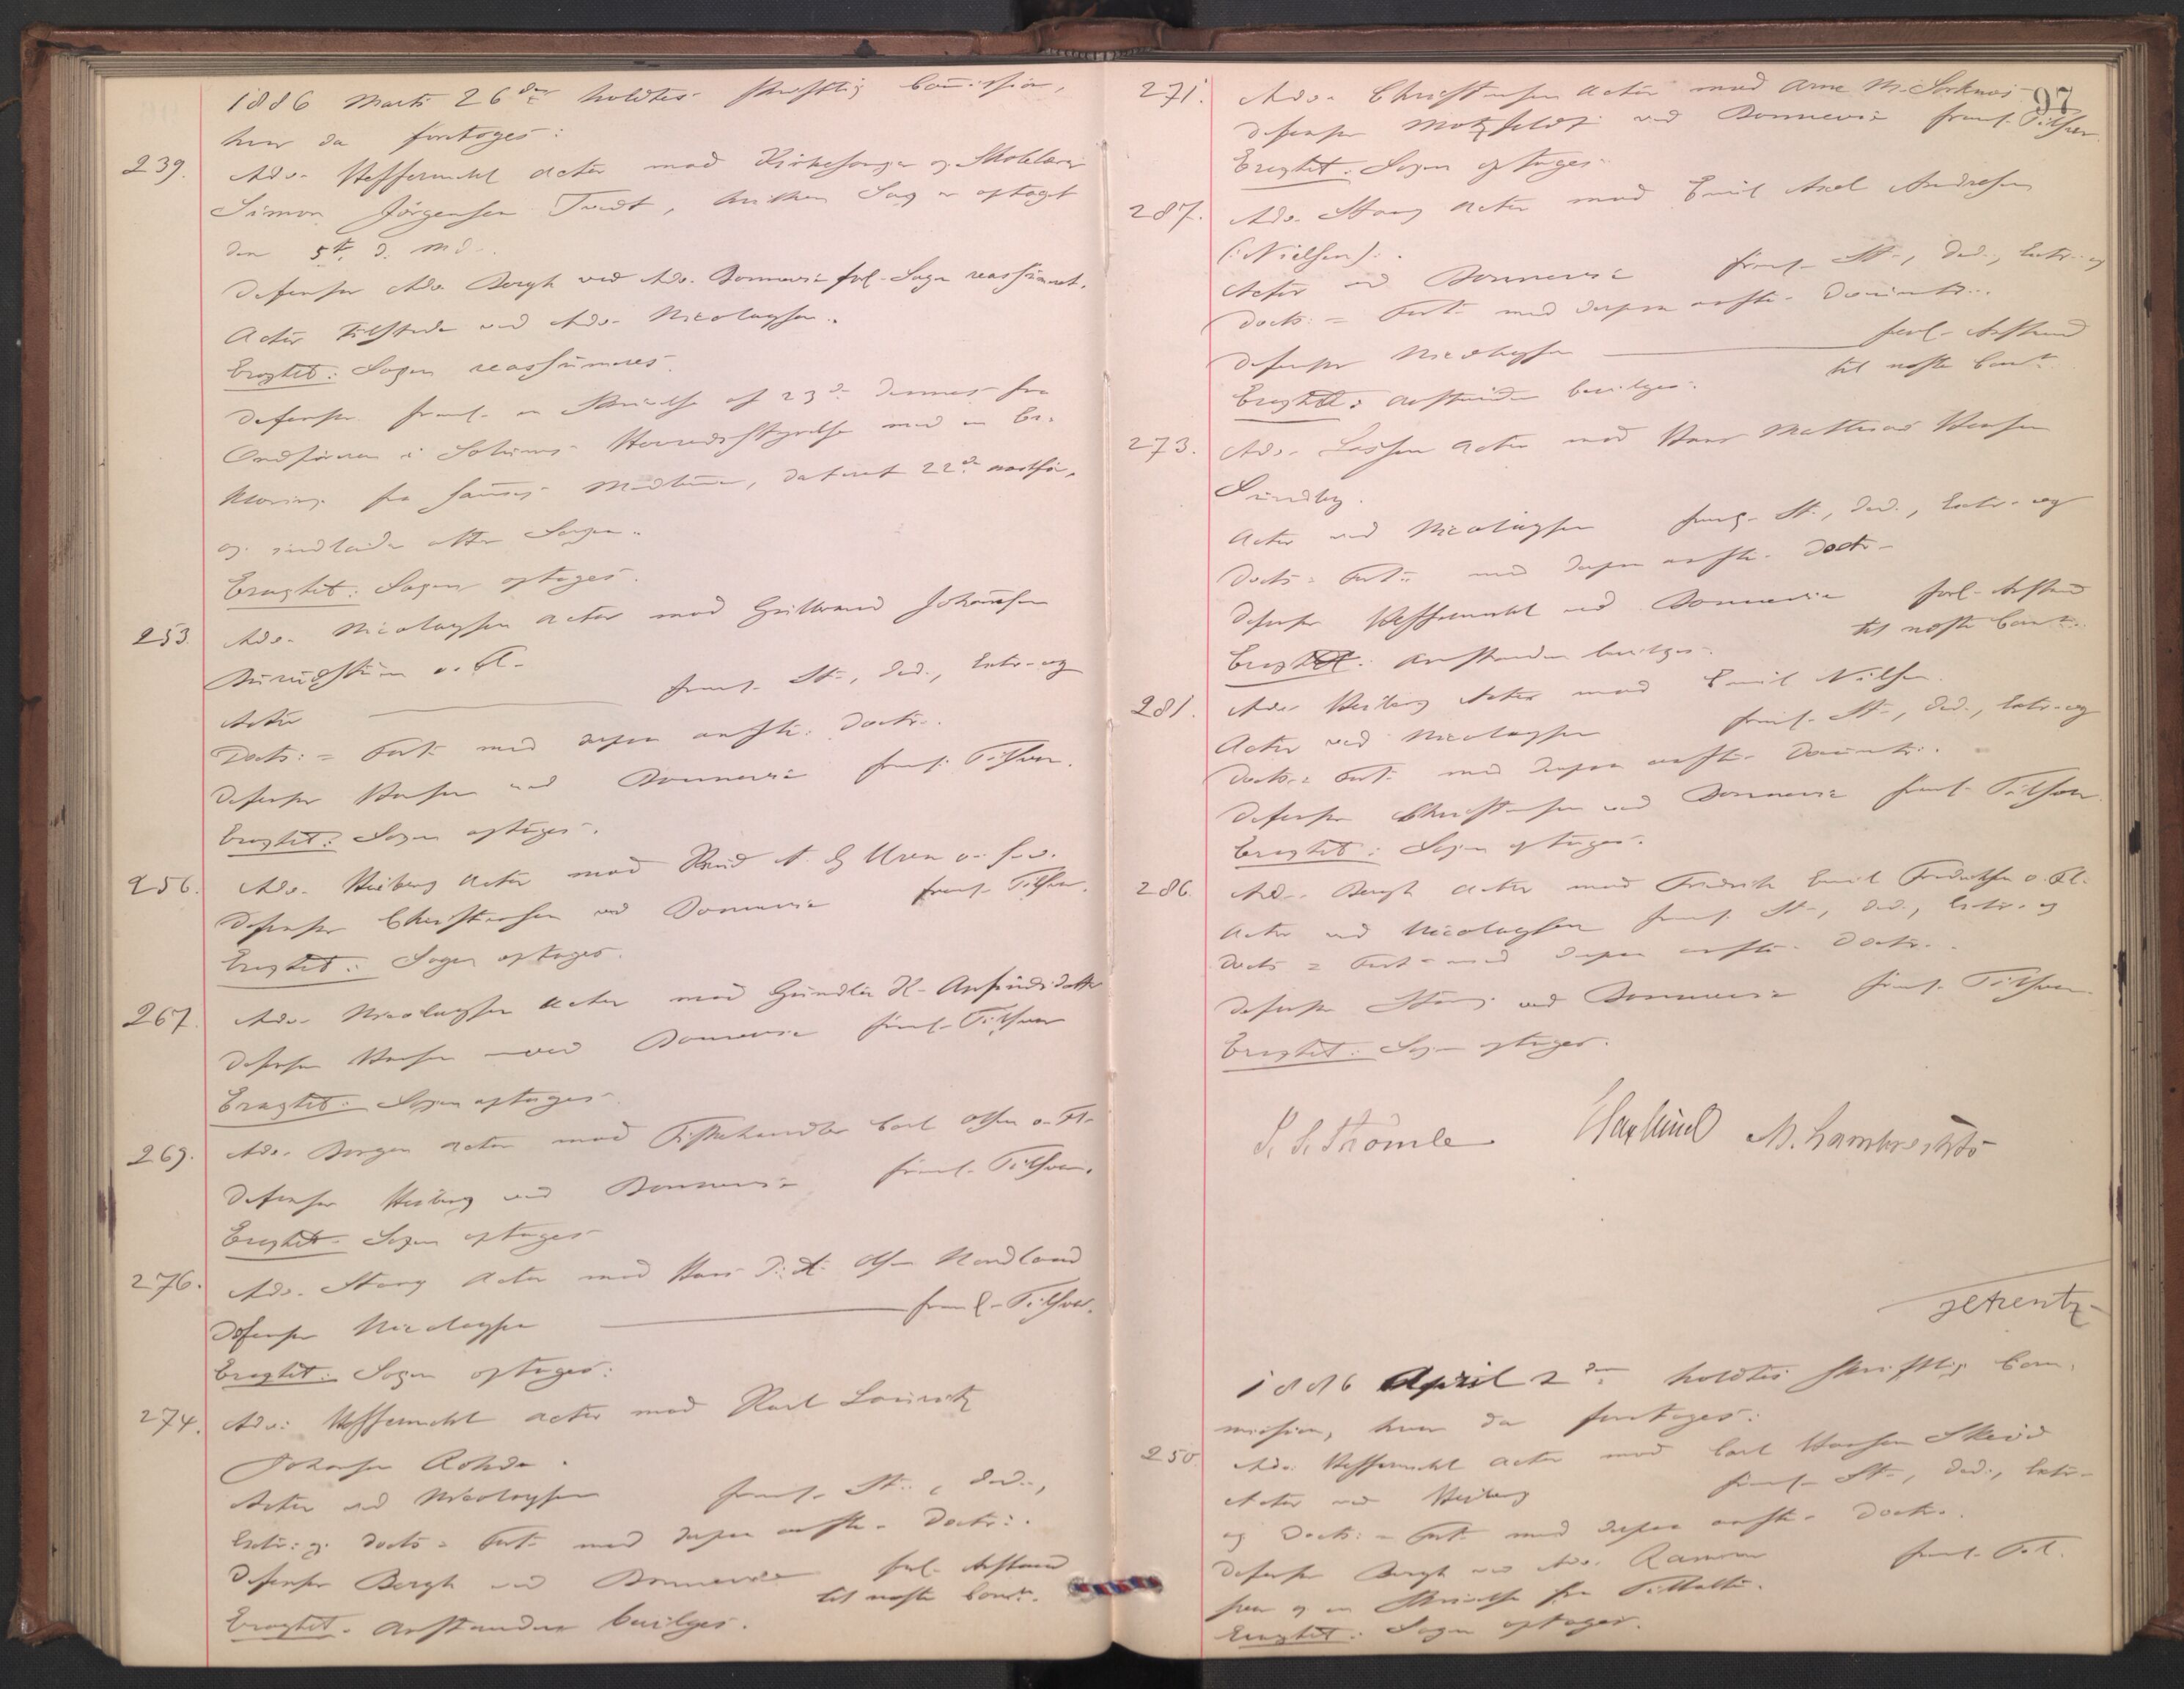 1886 Marts 26de holdtes skriftlig Commission,
hvor da foretoges:
239. Adv. Hessernehl Actor mod Kirkesanger og Skolelærer
Simon Jörgensen Tvedt, hvilken Sag er optaget
den 5te d. Md.
Defensor Adv. Bergh ved Adv. Bonnevie forl. Sagen reassümeret.
Actor tilstede ved Adv. Nicolaysen.
Eragtet: Sagen reassümeres.
Defensor freml. en Skrivelse af 23de dennes fra
Ordföreren i Herredsstyrelse med en Er-
klæring fra sammes Medlemmer, dateret 22de
og indlader atter Sagen.
Eragtet: Sagen optages.
253. Adv. Nicolaysen Actor mod Johansen
o. Fl.
Actor freml. St., Ded., Extr. og
Docts: = Fort. med derpaa anfte. Doctr.
Defensor Hansen ved Bonnevie freml. Tilsvar.
Eragtet: Sagen optages.
256. Adv. Heiberg Actor mod
Defensor Christensen ved Bonnevie freml. Tilsvar.
Eragtet: Sagen optages.
267. Adv. Nicolaysen Actor mod K. Arfindsdatter
Defensor Hansen ved Bonnevie freml. Tilsvar
Eragtet: Sagen optages.
269. Adv. Actor mod Fiskehandler Carl Olsen o. Fl.
Defensor Heiberg ved Bonnevie freml. Tilsvar.
Eragtet: Sagen optages
276. Adv. Stang Actor mod Hans Olsen Nordland
Defensor Nicolaysen freml. Tilsvar.
Eragtet: Sagen optages.
274. Adv. Hessernehl Actor mod Karl Lauritz
Johansen Rohde.
Actor ved Nicolaysen freml. St., Ded.,
Extr. og Docts = Fort. med derpaa anfte. Doctr.
Defensor Bergh ved Bonnevie forl. Anstand
til næste Comm.
Eragtet. Anstanden bevilges.
97
271. Adv. Christensen Actor mod Arne M. Sorknæs
Defensor Motzfeldt ved Bonnevie freml. Tilsvar.
Eragtet: Sagen optages.
287. Adv. Stang Actor mod Emil Axel Andresen
(: Nielsen).
Actor ved Bonnevie freml. St., Ded., Extr. og
Docts: = Fort. med derpaa anfte. Documtr.
Defensor Nicolaysen forl. Anstand
til næste Comm.
Eragtet: Anstanden bevilges.
273. Adv. Lassen Actor mod Hans Mathias Hansen
Sundby.
Actor ved Nicolaysen freml. St., Ded., Extr. og
Docts = Fort. med derpaa anfte. Doctr.
Defensor Hessernehl ved Bonnevie forl. Anstand
til næste Comm.
Eragtet: Anstanden bevilges.
281. Adv. Heiberg Actor mod Emil Nilsen.
Actor ved Nicolaysen freml. St., Ded., Extr. og
Docts. = Fort. med derpaa anfte. Documtr.
Defensor Christensen ved Bonnevie freml. Tilsvar.
Eragtet: Sagen optages.
286. Adv. Bergh Actor mod Fredrik Emil Fredriksen o. Fl.
Actor ved Nicolaysen freml. St., Ded., Extr. og
Docts = Fort. med derpaa anfte. Doctr.
Defensor Stang ved Bonnevie freml. Tilsvar.
Eragtet: Sagen optages.
M. Lambrechts
1886 April 2den holdtes skriftlig Com-
mission, hvor da foretoges:
250. Adv. Hessernehl Actor mod Carl Hansen
Actor ved Heiberg freml. St., Ded., Extr.
og Docts: = Fort. med derpaa anfte. Doctr.
Defensor Bergh ved Adv. freml. Til-
svar og en Skrivelse fra Tiltalte.
Eragtet: Sagen optages.